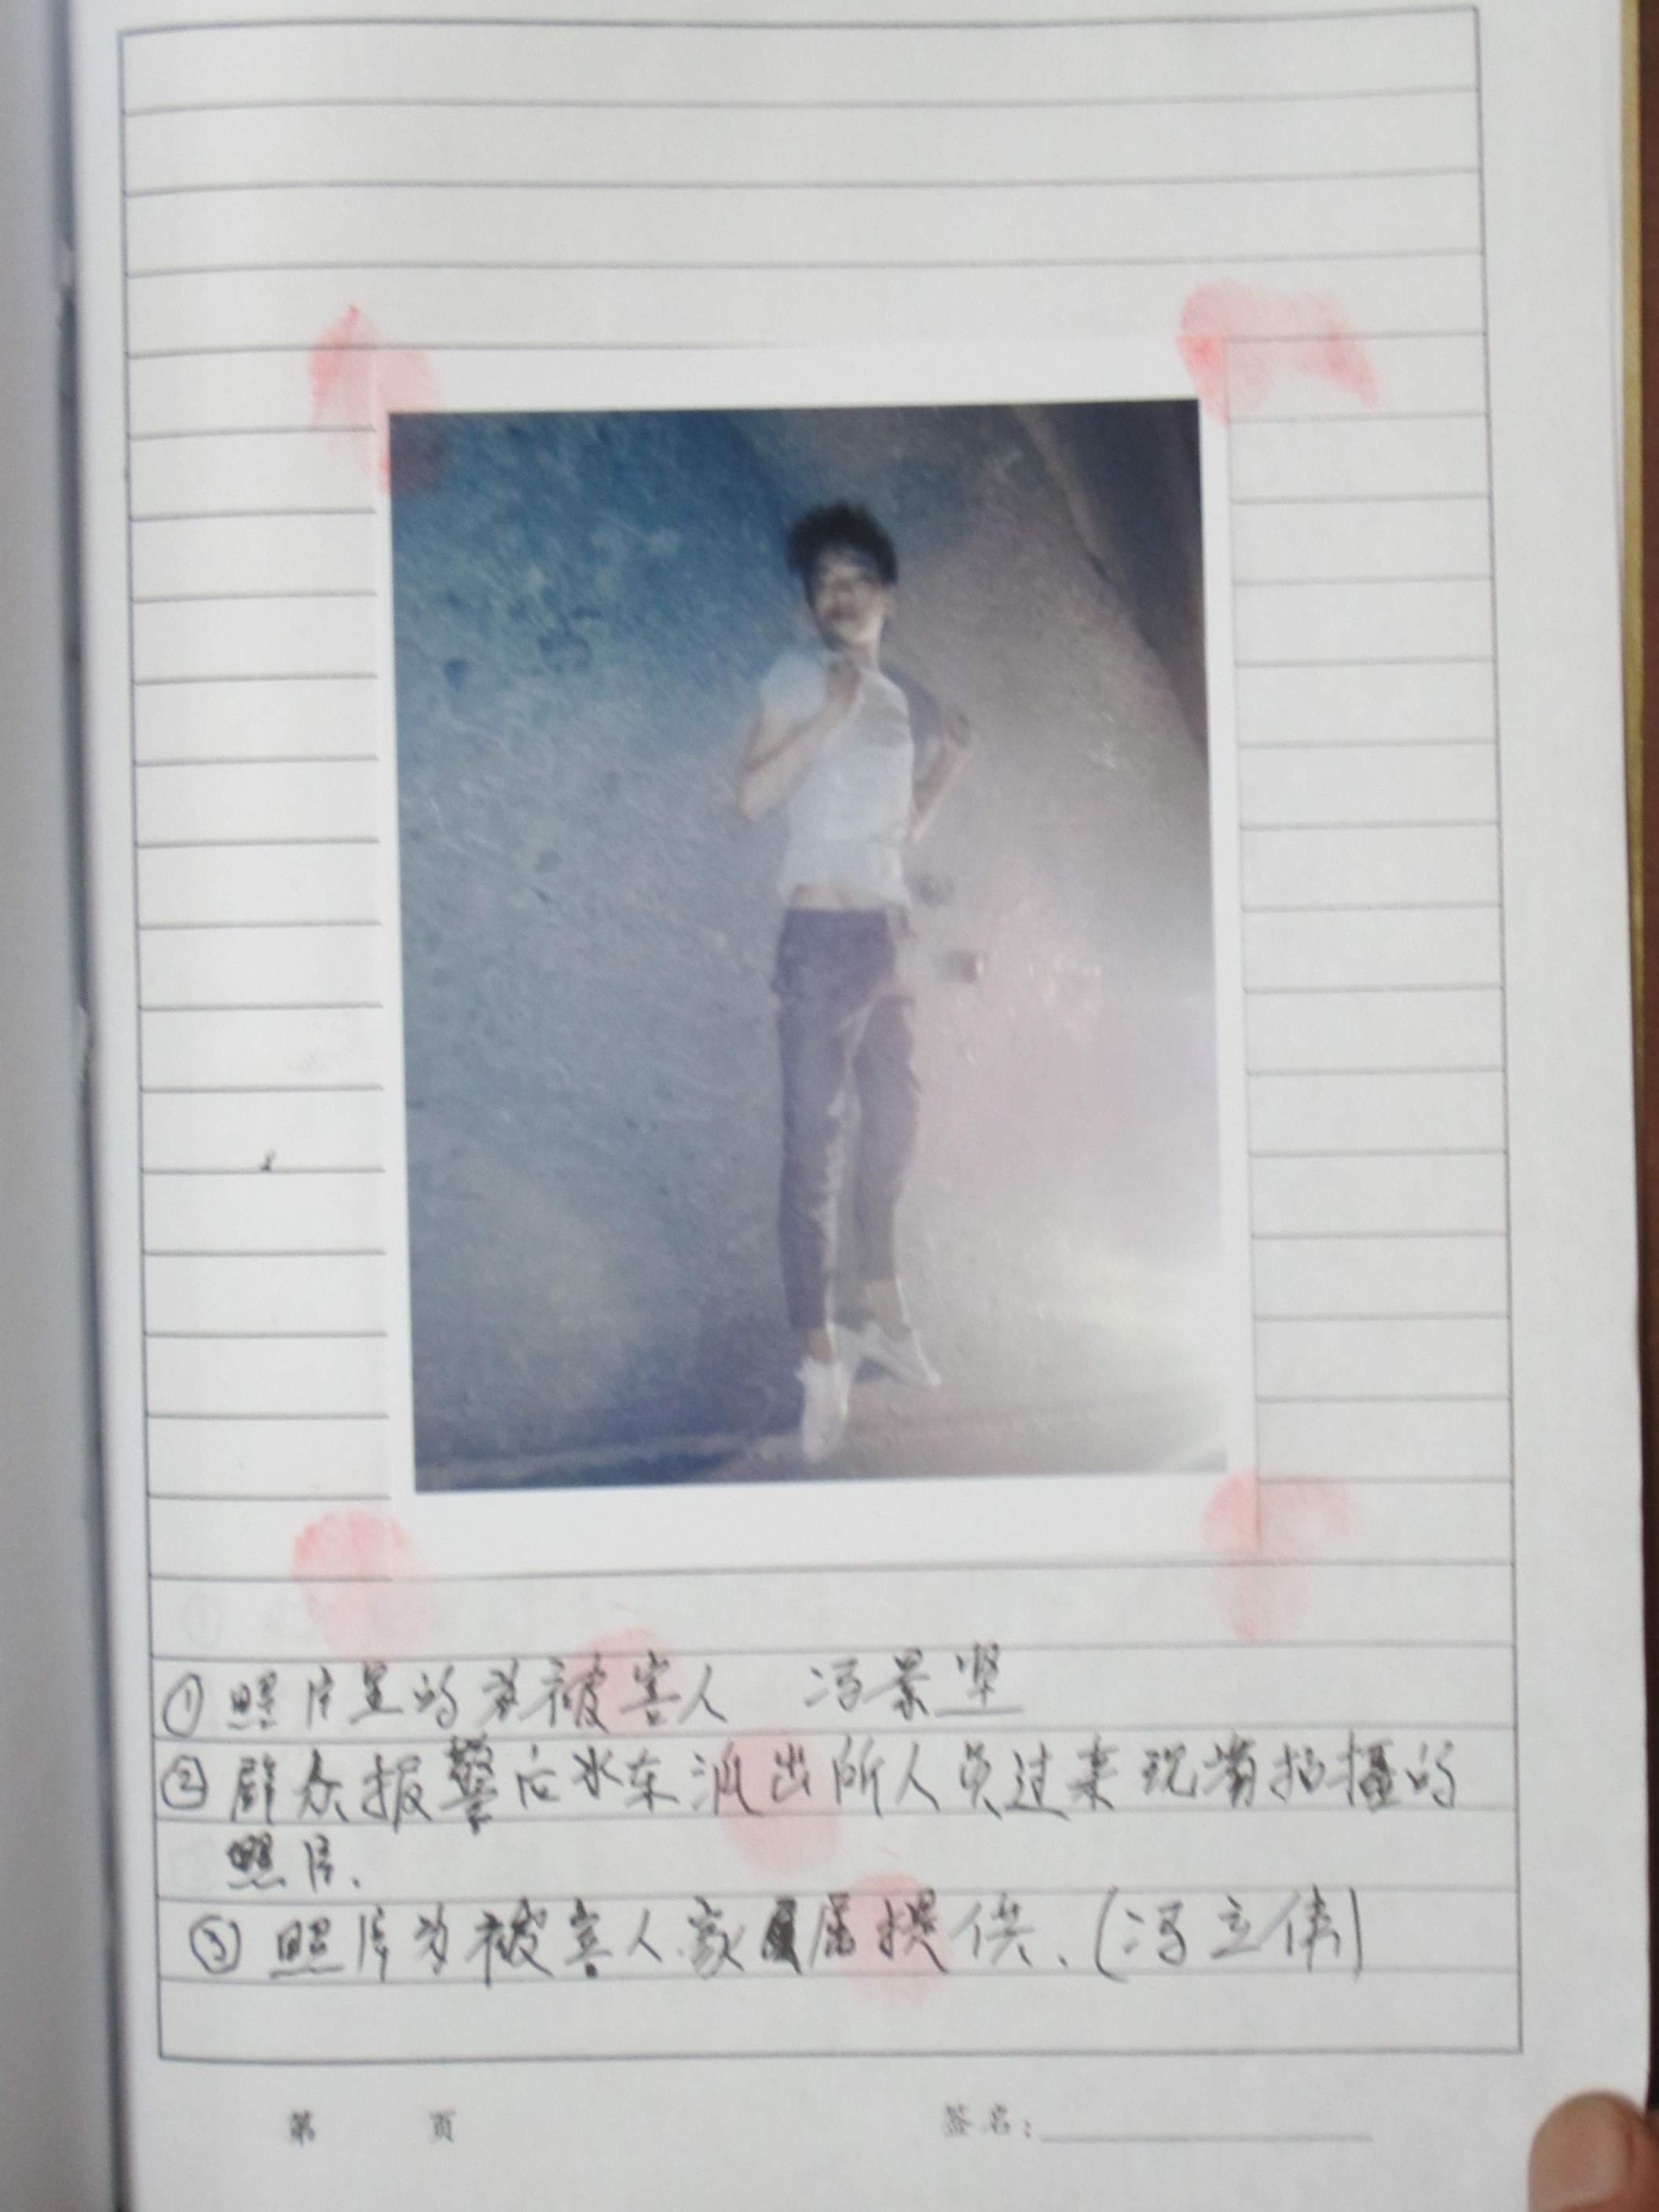 ①照片里的为被害人 冯景坚
②群众报警后水东派出所人员过来现场拍摄的
照片.
③照片为被害人家属提供.(冯立伟)
第 页
签名: